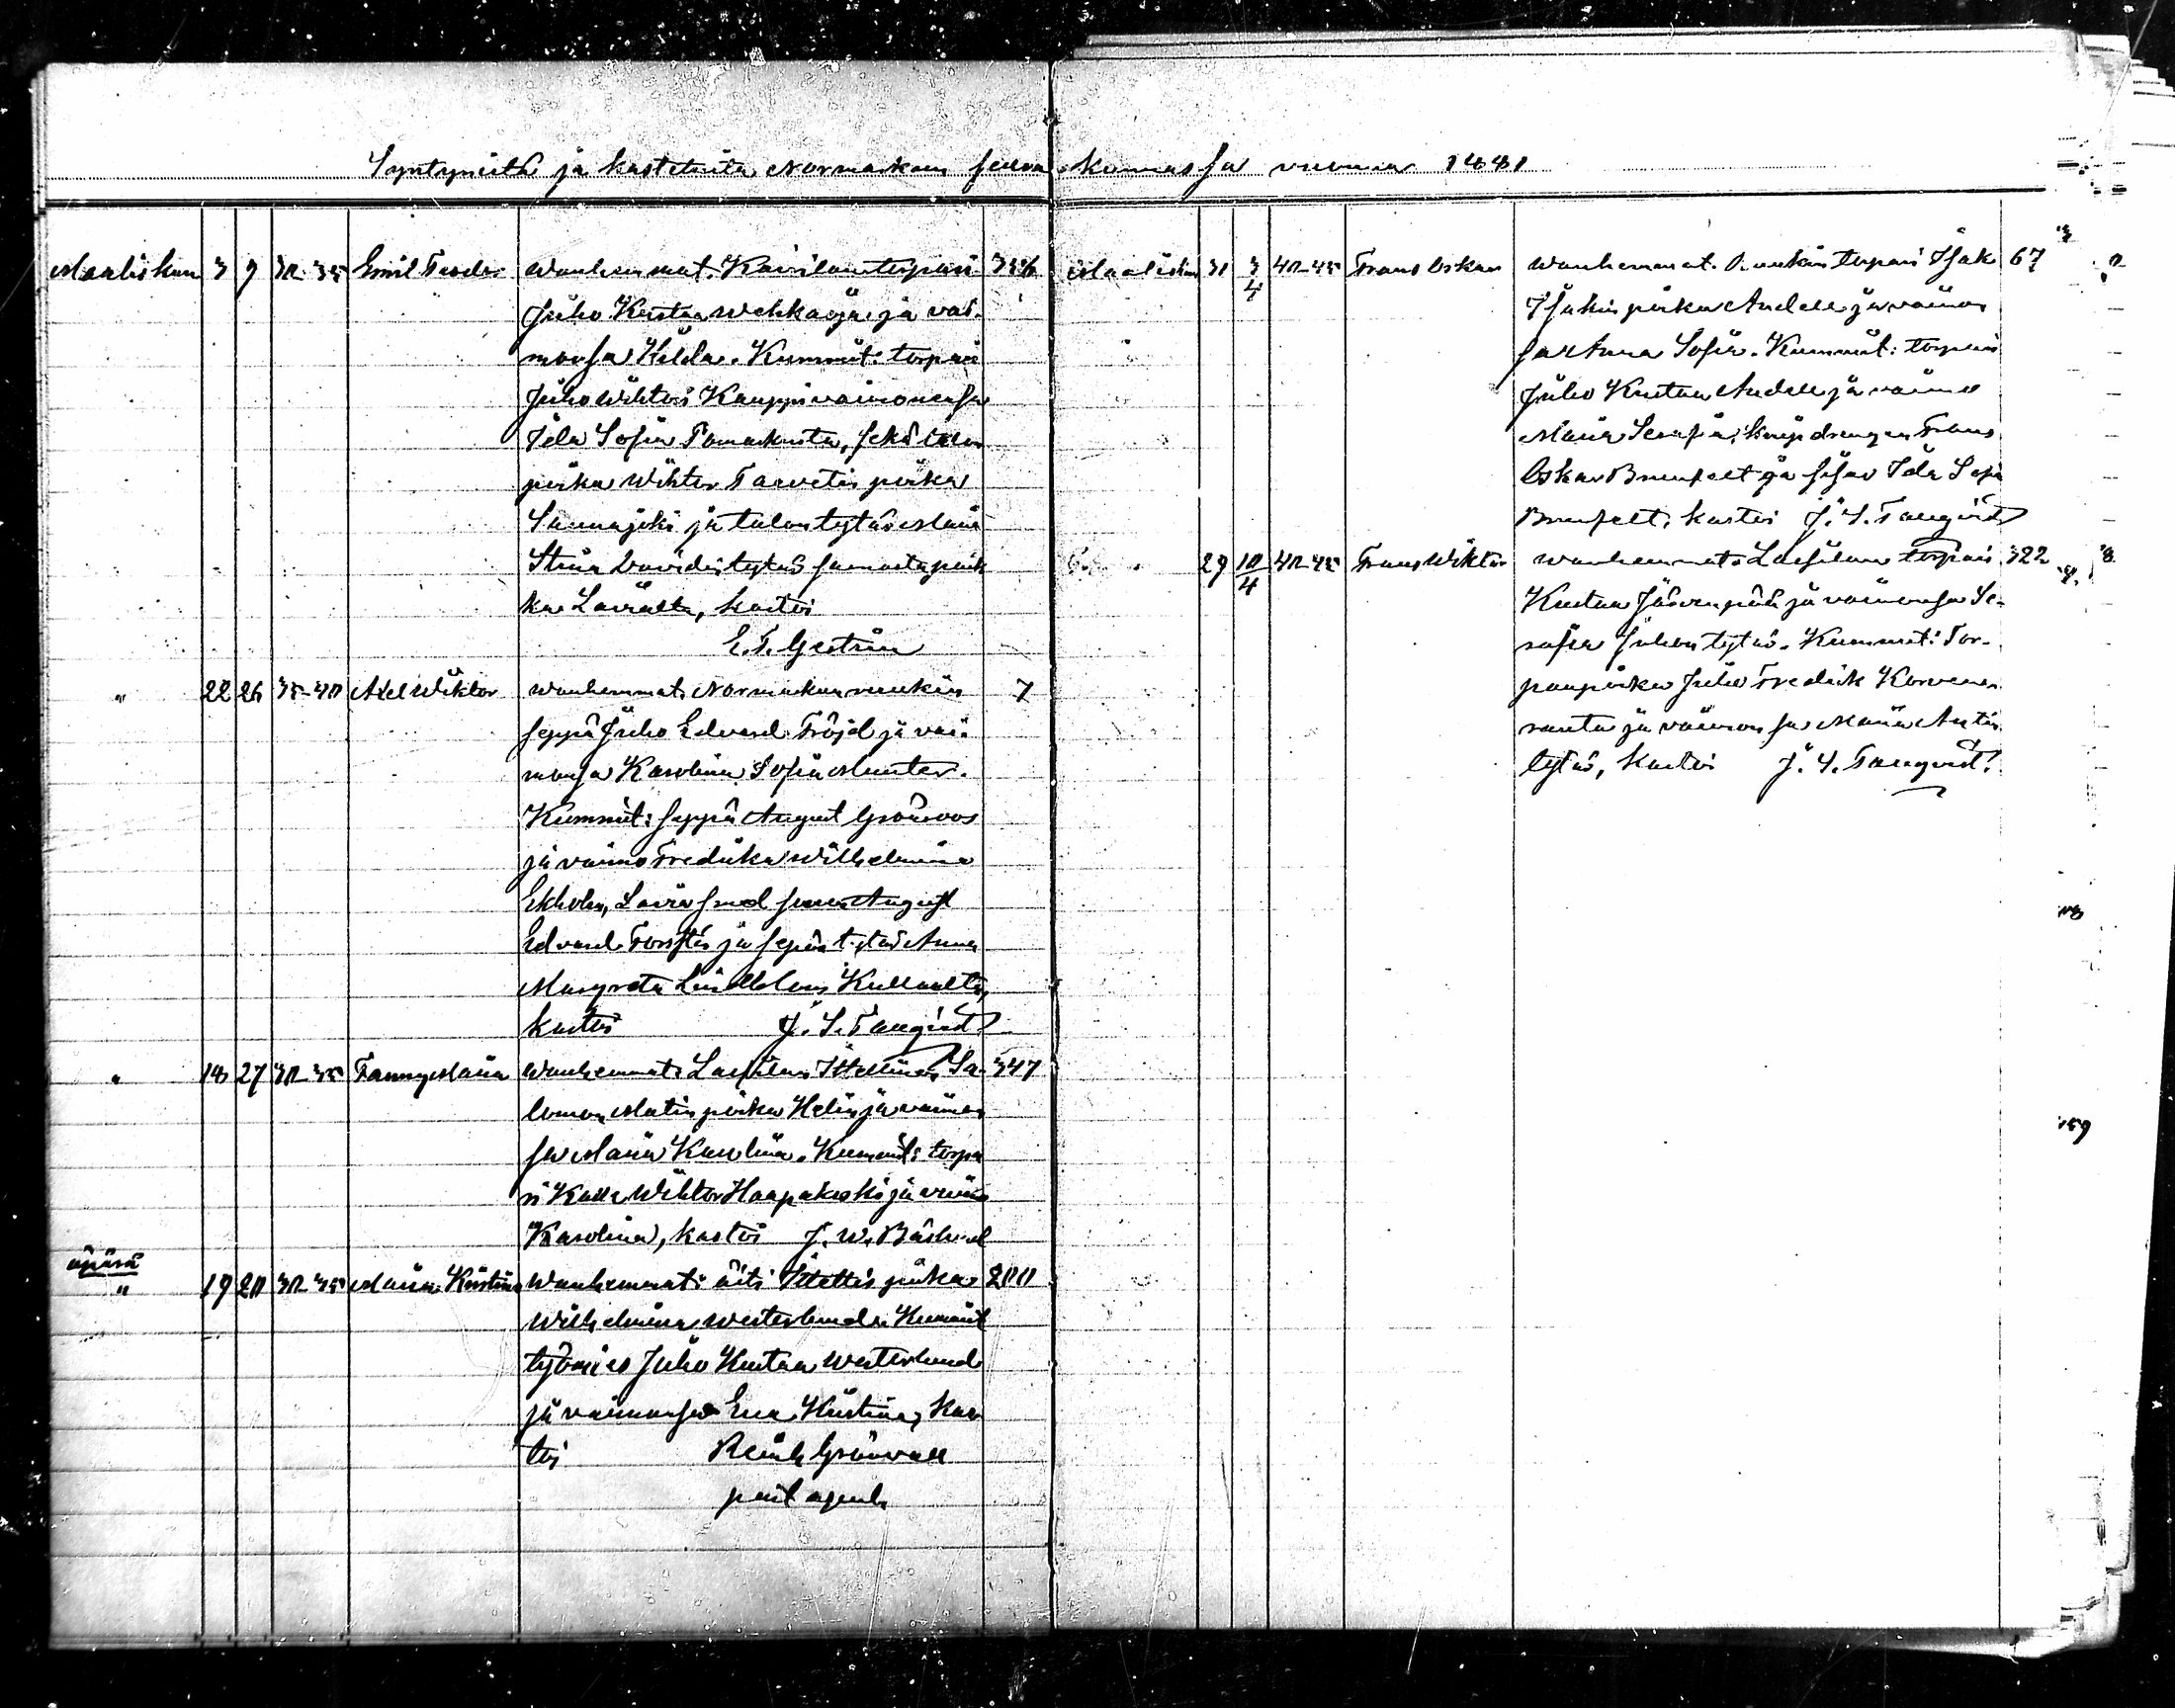 Syntyneitä ja kastetuita Normarkun seurakunnassa vuonna 1881
Maaliskun 3 9 30-35 Emil Teodor Wanhemmat. Kairilan torpari 336
Juho Kustaa Wehkaoja ja vai-
monsa Hilda. Kummit: torpari
Juho Wihtori Kauppi vaimonensa
Ida Sofia Pomarkusta, sekä talon
poika Wihtor Taavetin poika
Sannajoki ja talon tytär Maria
Stiina Davidin tytär samasta paik
ka Lavialta, kastoi
E. T. Gestrin
" 22 26 35-40 Axel Wiktor Wanhemmat. Normarkun ruukin 7
seppä Juho Edvard Fröjd ja vai-
monsa Karolina Sofia Munter.
Kummit: seppä August Grönroos
ja vaimo Fredrika Wilhelmina
Ekholm, August
Edvard Forsstén ja sepän tytär Anna
Margreta Lindblom Kullaalta,
kastoi J. S. Tanqvist
" 18 27 30-35 Fanny Maria Wanhemmat: Lassilan Itsellinen Sa- 347
lomon Matin poika Helin ja vaimon
sa Maria Karolina. Kummit: torpa
ri Kalle Wihtor Haapakoski ja vaimo
Karolina, kastoi J. W. Bäckvall
äpärä
" 19 20 30-35 Maria Kristina Wanhemmat: äiti Itsellis piika 200
Wilhelmina Westerlund. Kummit
työmies Juho Kustaa Westerlund
ja vaimonsa Eva Kristina, kas
toi Reinh Grönvall
past. agent
Maaliskun 31 3/4 40-45 Frans Oskar Wanhemmat. Ruukin torpari Isak 67
Isakin poika Andell ja vaimon
sa Anna Sofia. Kummit: torpari
Juho Kustaa Andell ja vaimo
Maria Serafia; drengin Frans
Oskar Brunfelt ja sisar Ida Sofia
Brunfelt, kastoi J. S. Tanqvist
29 10/4 40-45 Frans Wiktor Wanhemmat: Lassilan torpari 322
Kustaa Järvenpää ja vaimonsa Se-
rafia Juhon tytär. Kummit: Tor-
panpoika Juho Fredrik Korven
ranta ja vaimonsa Maria Antin
tytär, kastoi J. S. Tanqvist.